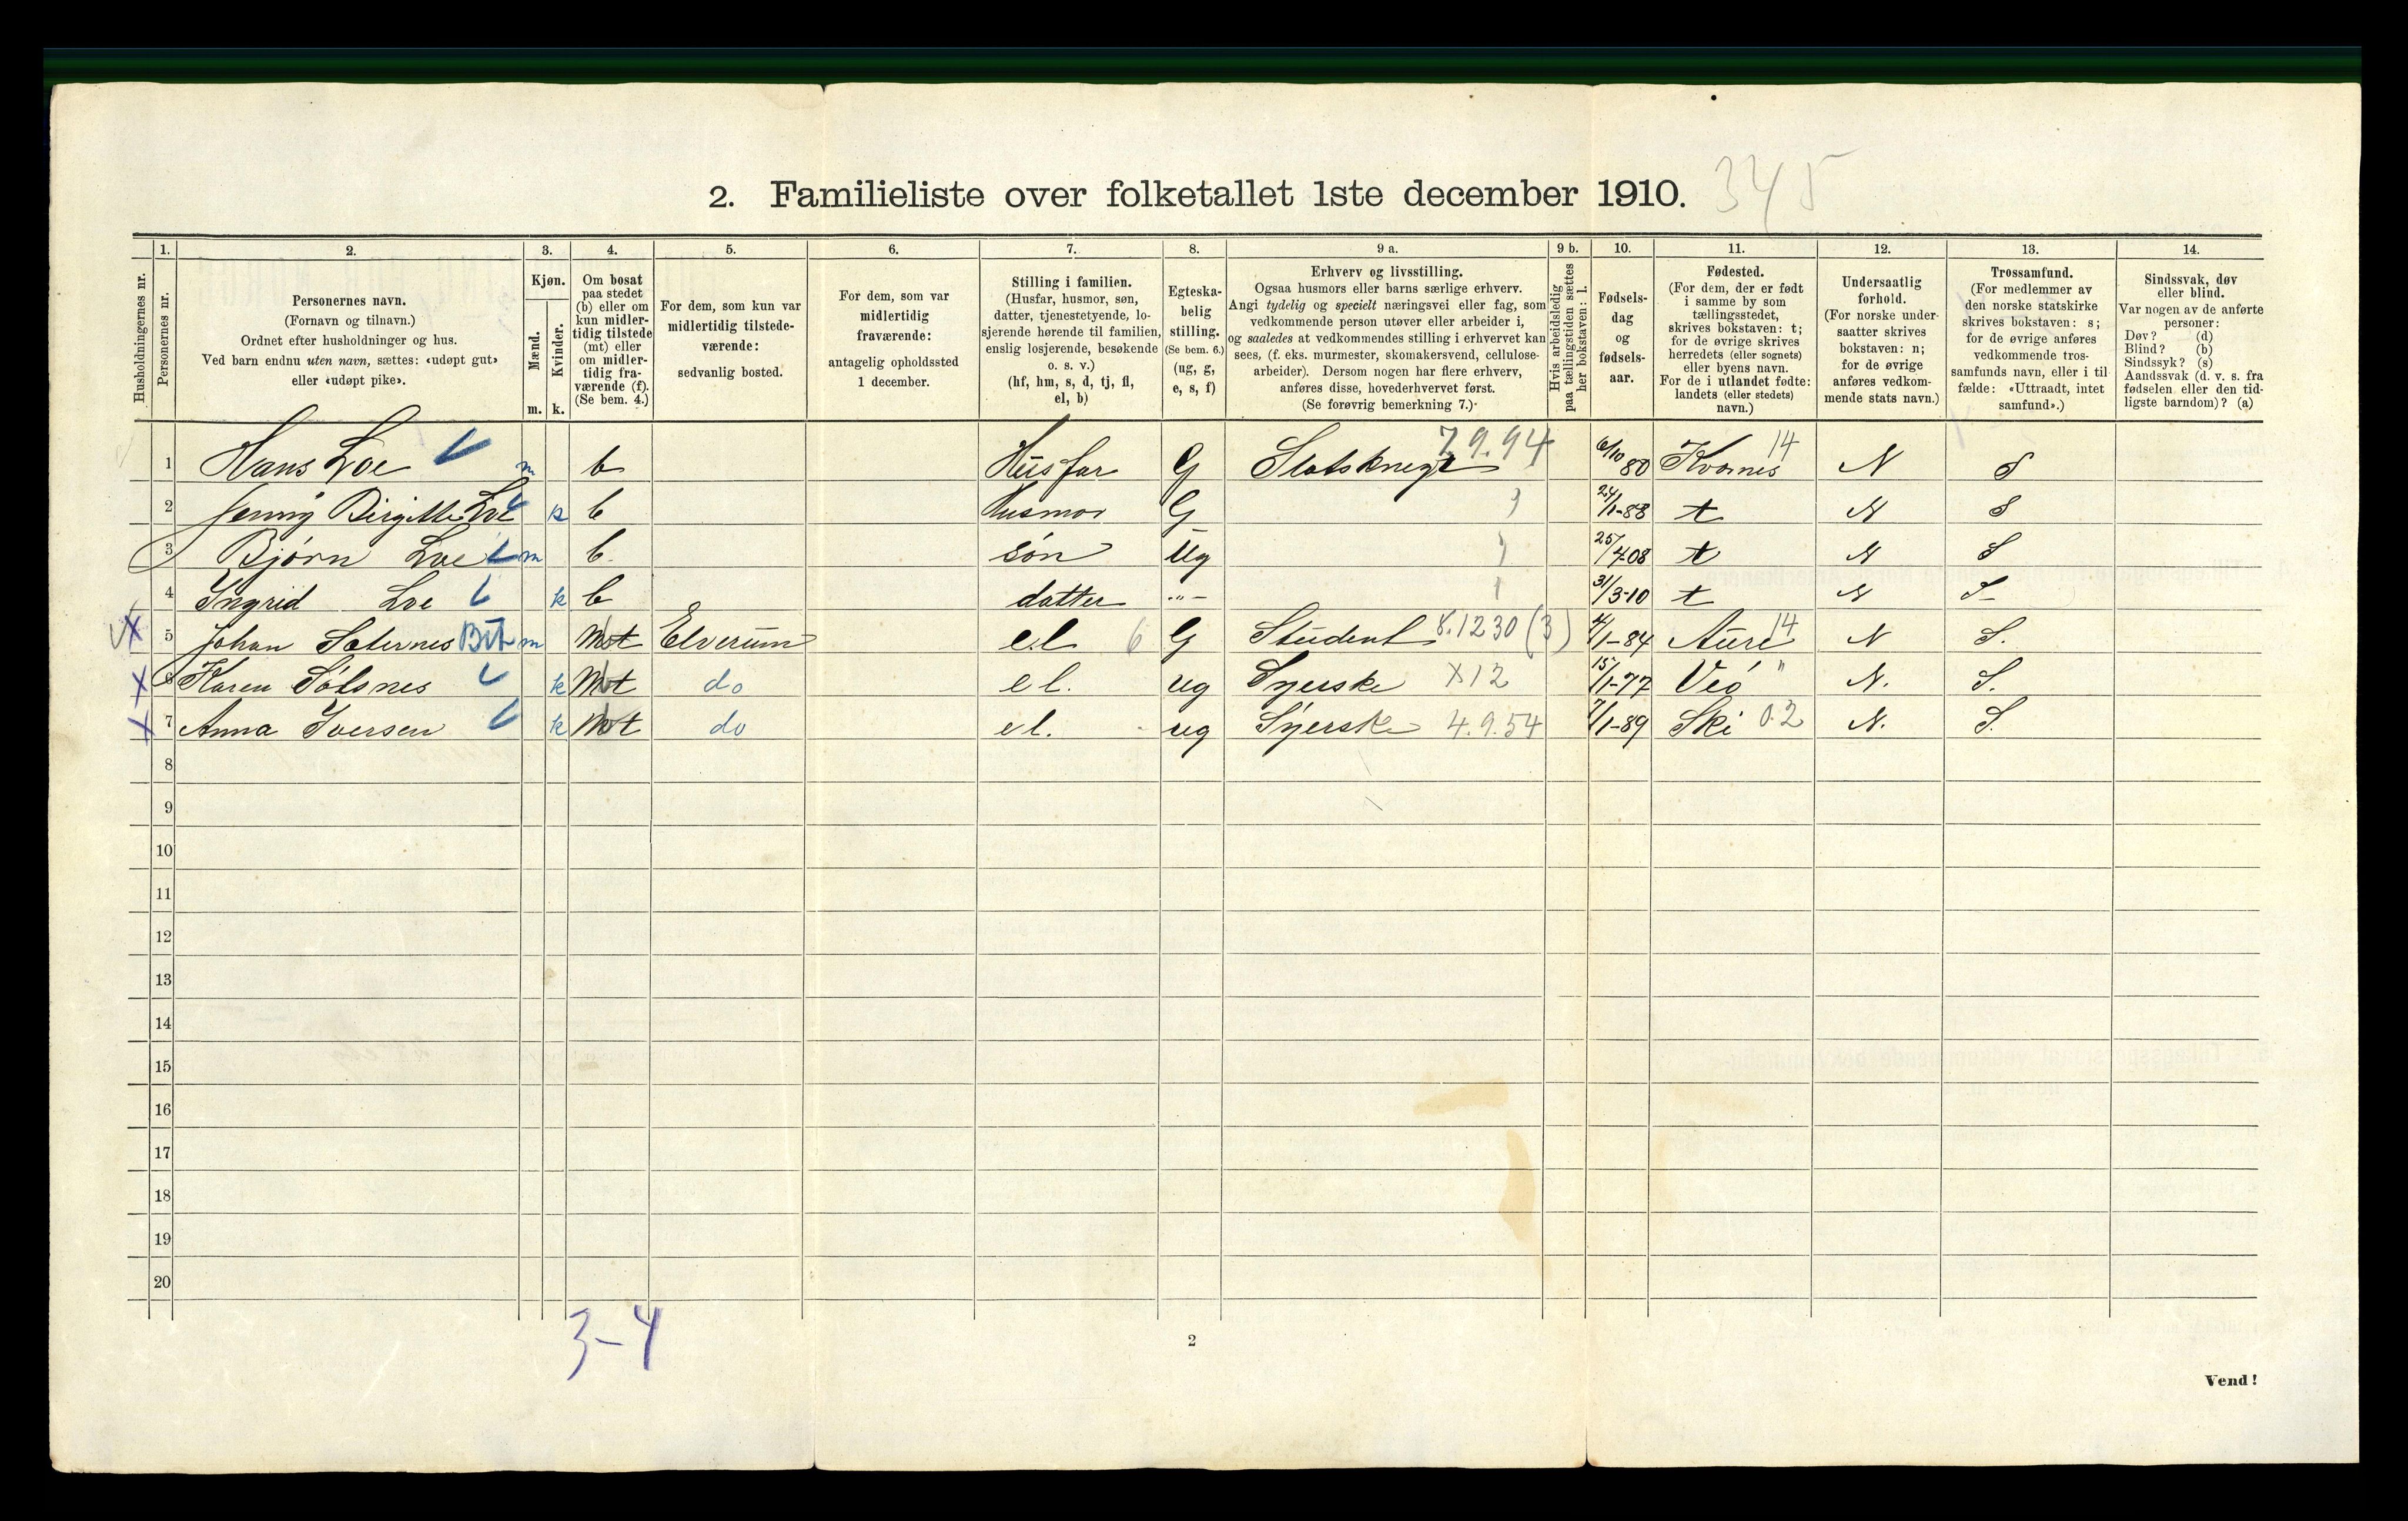 2. Familieliste over folketallet 1ste december 1910. 345
Husholdningernes nr.
1. Personernes nr.
2. Personernes navn. (Fornavn og tilnavn.) Ordnet efter husholdninger og hus. Ved barn endnu uten navn, sættes: «udøpt gut» eller «udøpt pike».
3. Kjøn. Mænd. m. Kvinder. k.
4. Om bosat paa stedet (b) eller om kun midlertidig tilstede (mt) eller om midlertidig fraværende (f). (Se bem. 4.)
5. For dem, som kun var midlertidig tilstedeværende: sedvanlig bosted.
6. For dem, som var midlertidig fraværende: antagelig opholdssted 1 december.
7. Stilling i familien. (Husfar, husmor, søn, datter, tjenestetyende, losjerende hørende til familien, enslig losjerende, besøkende o. s. v.) (hf, hm, s, d, tj, fl, el, b)
8. Egteskabelig stilling. (Se bem. 6.) (ug, g, e, s, f)
9 a. Erhverv og livsstilling. Ogsaa husmors eller barns særlige erhverv. Angi tydelig og specielt næringsvei eller fag, som vedkommende person utøver eller arbeider i, og saaledes at vedkommendes stilling i erhvervet kan sees, (f. eks. murmester, skomakersvend, cellulosearbeider). Dersom nogen har flere erhverv, anføres disse, hovederhvervet først. (Se forøvrig bemerkning 7.)
9 b. Hvis arbeidsledig paa tællingstiden sættes her bokstaven: l.
10. Fødselsdag og fødselsaar.
11. Fødested. (For dem, der er født i samme by som tællingsstedet, skrives bokstaven: t; for de øvrige skrives herredets (eller sognets) eller byens navn. For de i utlandet fødte: landets (eller stedets) navn.)
12. Undersaatlig forhold. (For norske undersaatter skrives bokstaven: n; for de øvrige anføres vedkommende stats navn.)
13. Trossamfund. (For medlemmer av den norske statskirke skrives bokstaven: s; for de øvrige anføres vedkommende trossamfunds navn, eller i tilfælde: «Uttraadt, intet samfund».)
14. Sindssvak, døv eller blind. Var nogen av de anførte personer: Døv? (d) Blind? (b) Sindssyk? (s) Aandssvak (d. v. s. fra fødselen eller den tidligste barndom)? (a)
1 Hans Loe m b Husfar G 7.9.94 6/10 80 Kvernes 14 N S
2 Jenny Birgitte Loe k b Husmor G 24/1-88 t N S
3 Bjørn Loe m b. søn Ug 25/4 08 t N S
4 Ingrid Loe k b datter -"- 31/3-10 t N S
X 5 Johan Sæternes m Mt Elverum el 6 G Student 8.1230 (3) 4/1-84 Aure 14 N S.
X 6 Karen Sølsnes k Mt do el. ug Syerske X12 15/1-77 Veö " N. S.
X 7 Anna Iversen k Mt do el. ug Syerske 4.9.54 7/1-89 Ski 02 N. S.
8
9
10
11
12
13
14
15
16
17
18
19
20
3-4
2
Vend!